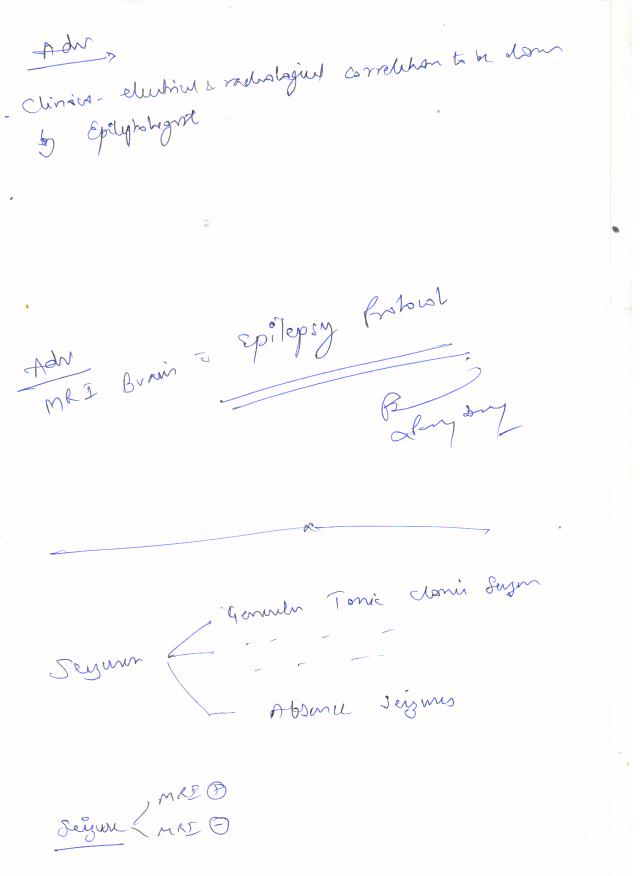 Adv
- Clinico- electrical & radiological correlation to be done
by Epileptologist
Adv
MRI Brain c Epilepsy Protocol
Seizures
Generalis Tonic clonic Seizures
Absence Seizures
Seizure
MRI +
MRI -